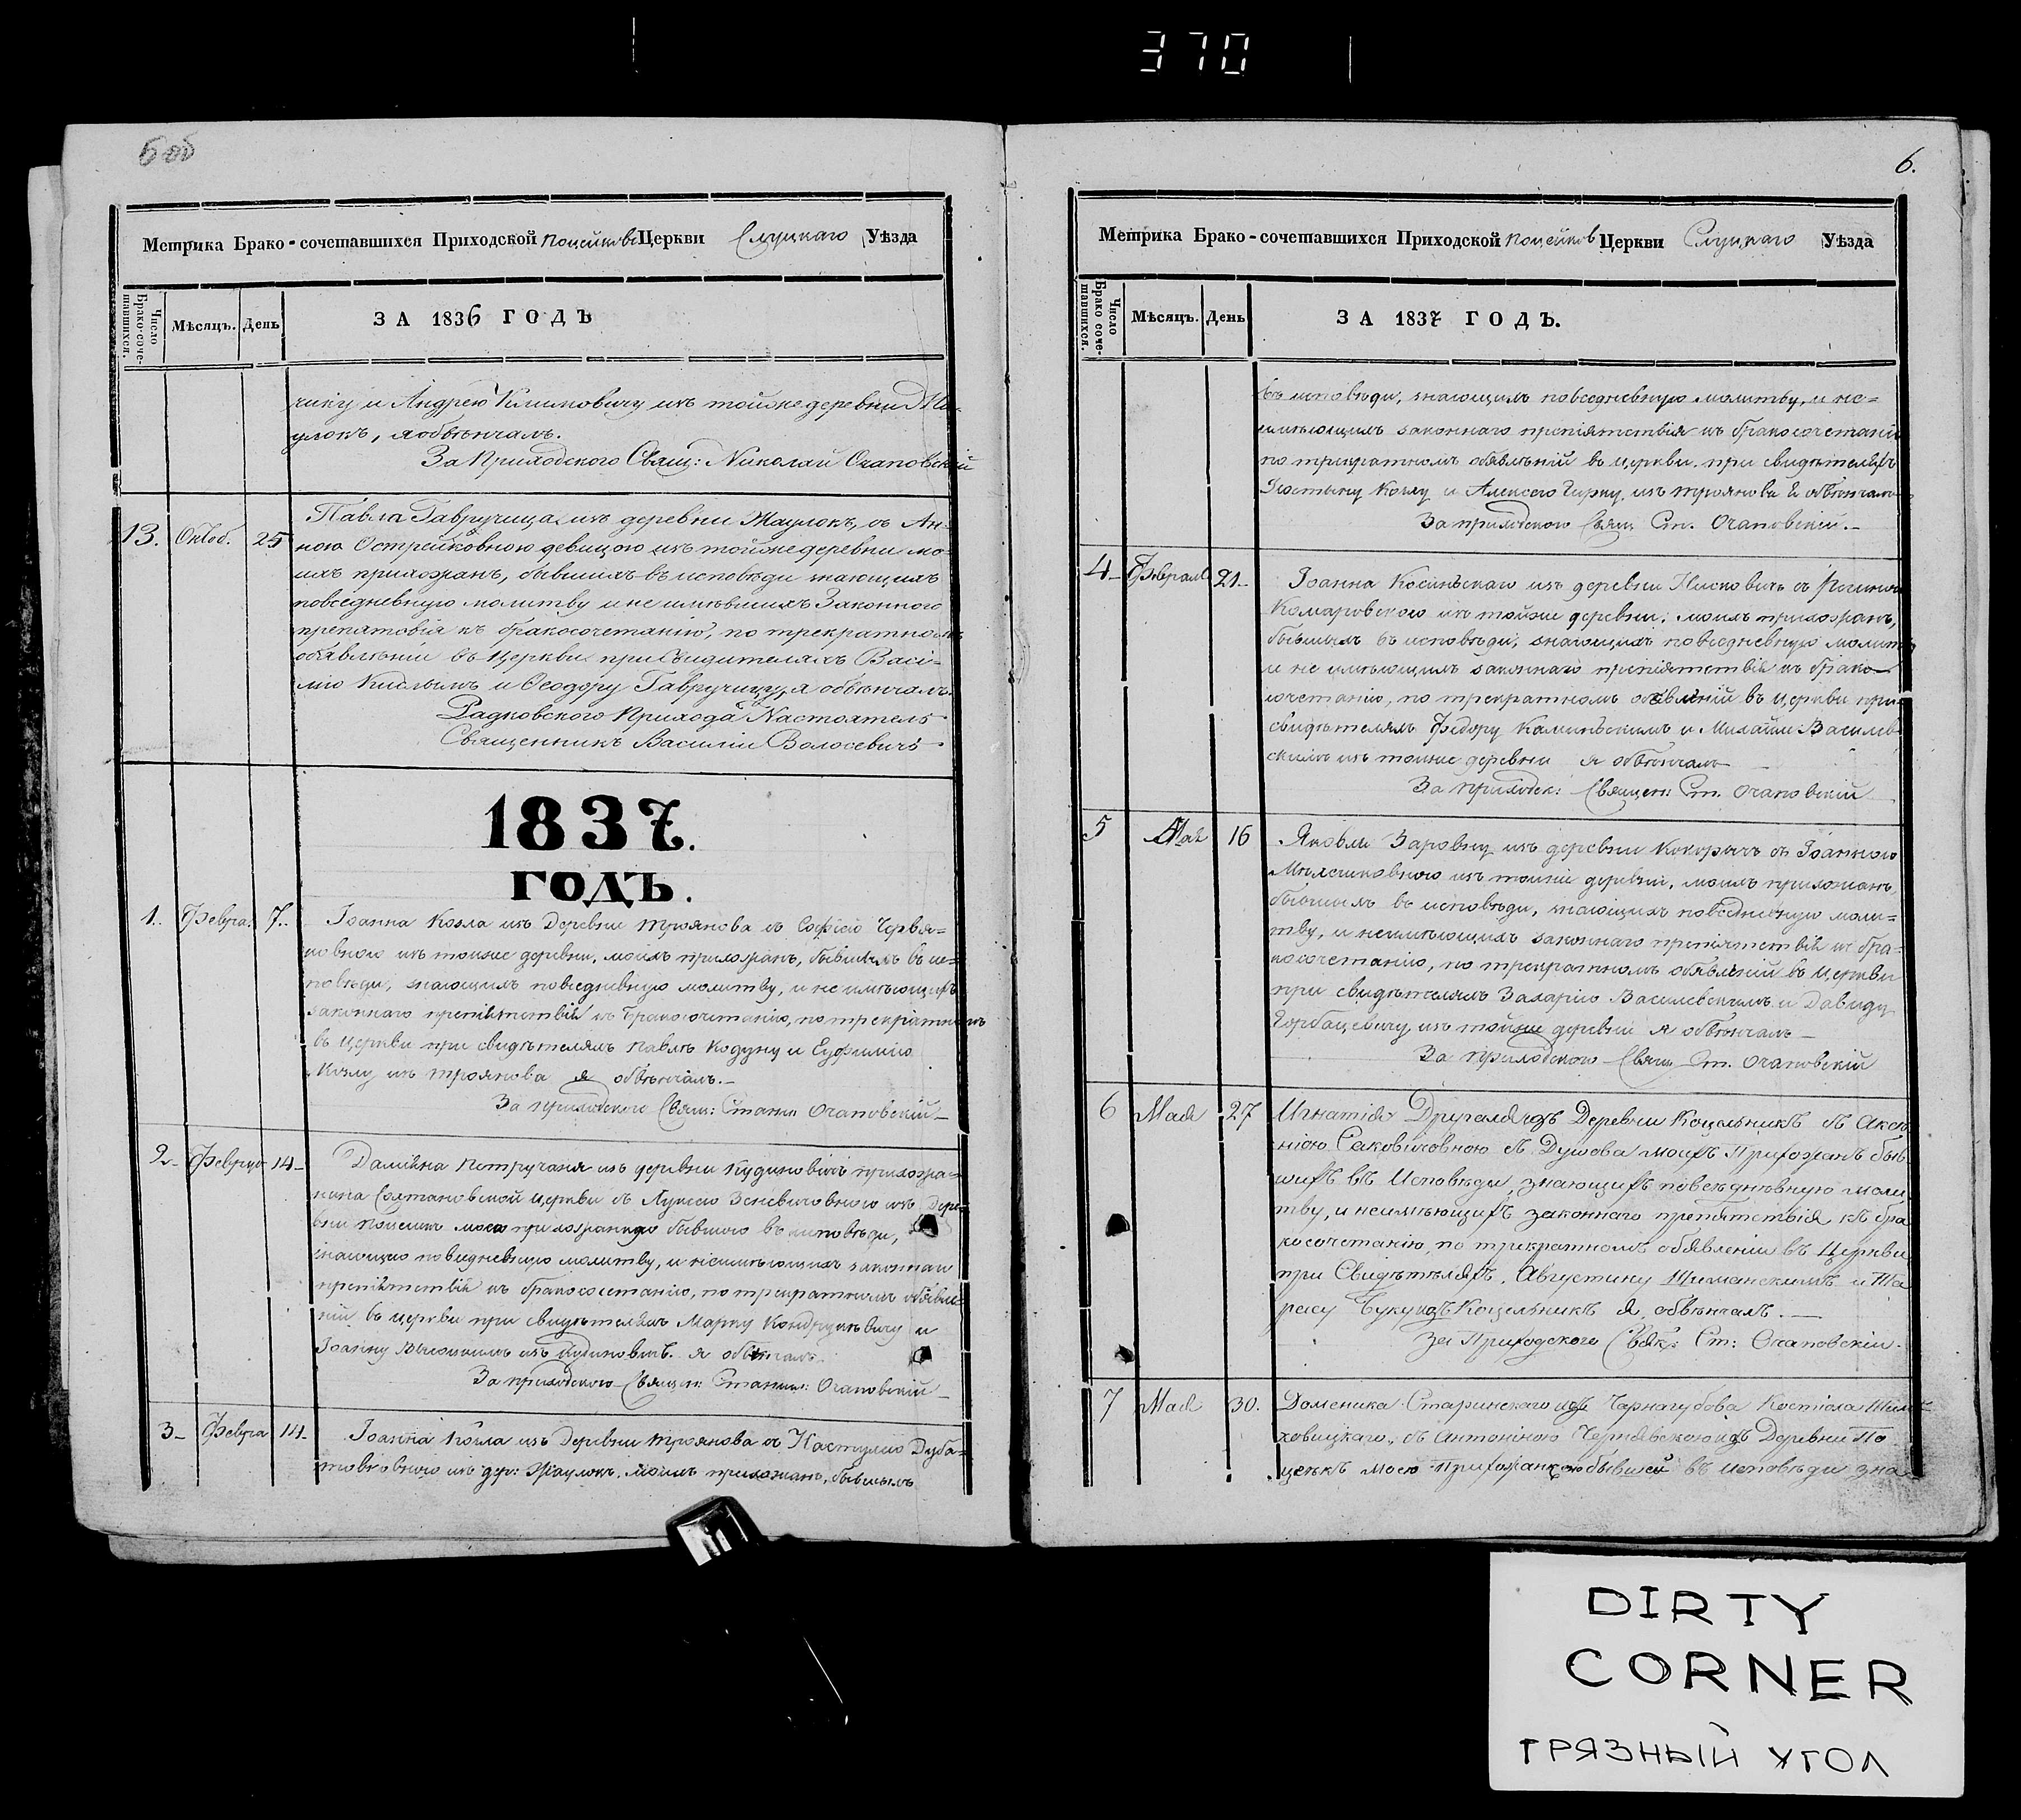 370
6 об
Метрика Брако-сочетавшихся Приходской Поцейков Церкви Слуцкаго Уѣзда
Число Брако-соче-тавшихся.
Мѣсяцъ.
День
ЗА 1836 ГОДЪ
чицу и Андрею Климовичу изъ тойже деревни
улокъ, я обвѣнчалъ.
За Приходского Свящ: Николай Очаповскій
13. Октоб. 25
Павла Гавручица изъ деревни Жаулокъ, съ Ан-
ною Острейковною девицою изъ тойже деревни мо-
ихъ прихожанъ, бывшихъ въ исповѣди знающихъ
повседневную молитву и не имѣвшихъ Законного
препятовія къ бракосочетанію, по трекратномъ
объявленіи въ Церкви при Свидителяхъ Васи-
лію Кислымъ и Ѳеодору Гавручицу, я обвѣнчалъ.
Радковского Прихода Настоятель
Священникъ Василіи Волосевичъ
1837.
ГОДЪ.
1. Февра. 7.
Іоанна Козла изъ Деревни Троянова съ Софією Червя-
ковною изъ тойже деревни, моихъ прихожанъ, бывшихъ въ ис-
повѣди, знающихъ повседневную молитву, и не имѣющихъ
законнаго препятствія къ бракосочетанію, по трекратномъ
въ Церкви при свидѣтеляхъ Павлѣ Кодуну и Еуфимію
Козлу изъ Троянова я обвѣнчалъ.
За приходского Свящ: Стани: Очаповскій
2 Феврця 14
Даміяна Петручаня изъ деревни Кудиновичъ прихожа-
нина Солтановской Церкви съ Луцею Зеневичовною изъ Дере-
вни Поцеикъ моею прихожанкою бывшою въ исповѣди,
знающую повседневную молитву, и неимѣющихъ законнаго
препятствія къ бракосочетанію, по трекратномъ объявле-
ніи въ церкви при свидѣтеляхъ Марку Кондрукевичу и
Іоанну изъ Кудиновичъ. я обвѣнчалъ.
За приходского Священ: Станис: Очаповскій
3 Февра 14
Іоанна Козла изъ Деревни Троянова съ Настулію Дуба-
товковною изъ дер: Жаулокъ, моихъ прихожанъ, бывшихъ
6.
Метрика Брако-сочетавшихся Приходской Поцейков Церкви Слуцкаго Уѣзда
Число Брако соче-тавшихся.
Мѣсяцъ.
День
ЗА 1837 ГОДЪ.
въ исповѣди, знающихъ повседневную молитву, и не-
имѣющихъ законнаго препіятствія къ бракосочетанію
по трекратномъ объявленіи въ церкви, при свидѣтеляхъ
Іюстыну Козлу и Алексею Чирку изъ Троянова я обвѣнчалъ
За приходского Свящ Ст. Очаповскій.
4 Февраля 21
Іоанна Косинскаго изъ деревни съ
Комаровскою изъ тойже деревни, моихъ прихожанъ,
бывшихъ въ исповѣди, знающихъ повседневную молитву
и не имѣющихъ законнаго препіятствія къ брако-
сочетанію, по трекратномъ объявленіи въ Церкви при
свидѣтеляхъ Федору Каминьскимъ и Михаилу Василев-
скимъ изъ тойже деревни я обвѣнчалъ
За приходск: Священ: Ст. Очаповскій
5 Мая 16
Яковли изъ деревни Кокорычъ съ Іоанною
изъ тойже деревни, моихъ прихожанъ,
бывшихъ въ исповѣди, знающихъ повседневную моли-
тву, и неимѣющихъ законнаго препіятствія къ бра-
косочетанію, по трекратномъ объявленіи въ Церкви
при свидѣтеляхъ Захарію Василевскимъ и Давиду
Горбацевичу изъ тойже деревни я обвѣнчалъ
За приходского Свящ Ст. Очаповскій
6 Мая 27
Игнатія Другаля изъ Деревни Коцельникъ съ Аксе-
ніою Саковичовною съ Душова моихъ Прихожанъ быв-
шихъ въ Исповѣди, знающихъ повсѣднѣвную моли-
тву, и неимѣющихъ законнаго препятствія къ бра
косочетанію, по трекратномъ объявленіи въ Церкви,
при Свидѣтѣляхъ, Августину Шиманскимъ и Та
расу Чуку изъ Коцельникъ я обвѣнчалъ.
за Приходского Ст: Очаповскіи.
7 Мая 30.
Доменика Старинскаго изъ Чарнагубова Костіола
ховицкаго, съ Антоніною Чернявскою изъ Деревни По
цеекъ моею Прихожанкою бывшей въ Исповѣди зна
DIRTY
CORNER
ГРЯЗНЫЙ УГОЛ